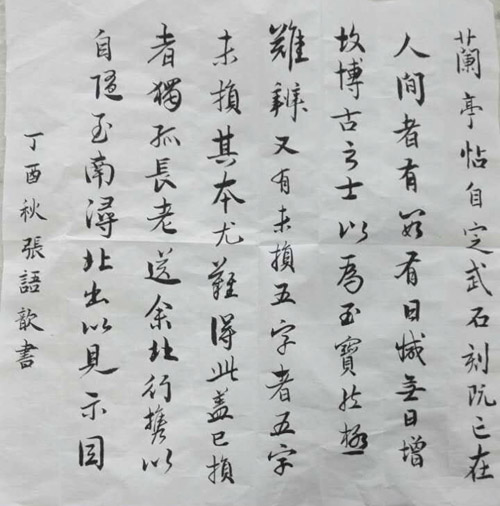 蘭亭帖自定武石刻既亡在
人間者有數有日減無日增
故博古之士以爲至寶然極
難辨又有未損五字者五字
未損其本尤難得此蓋已損
者獨孤長老送余北行攜以
自隨至南潯北出以見示因
丁酉秋張語歆書